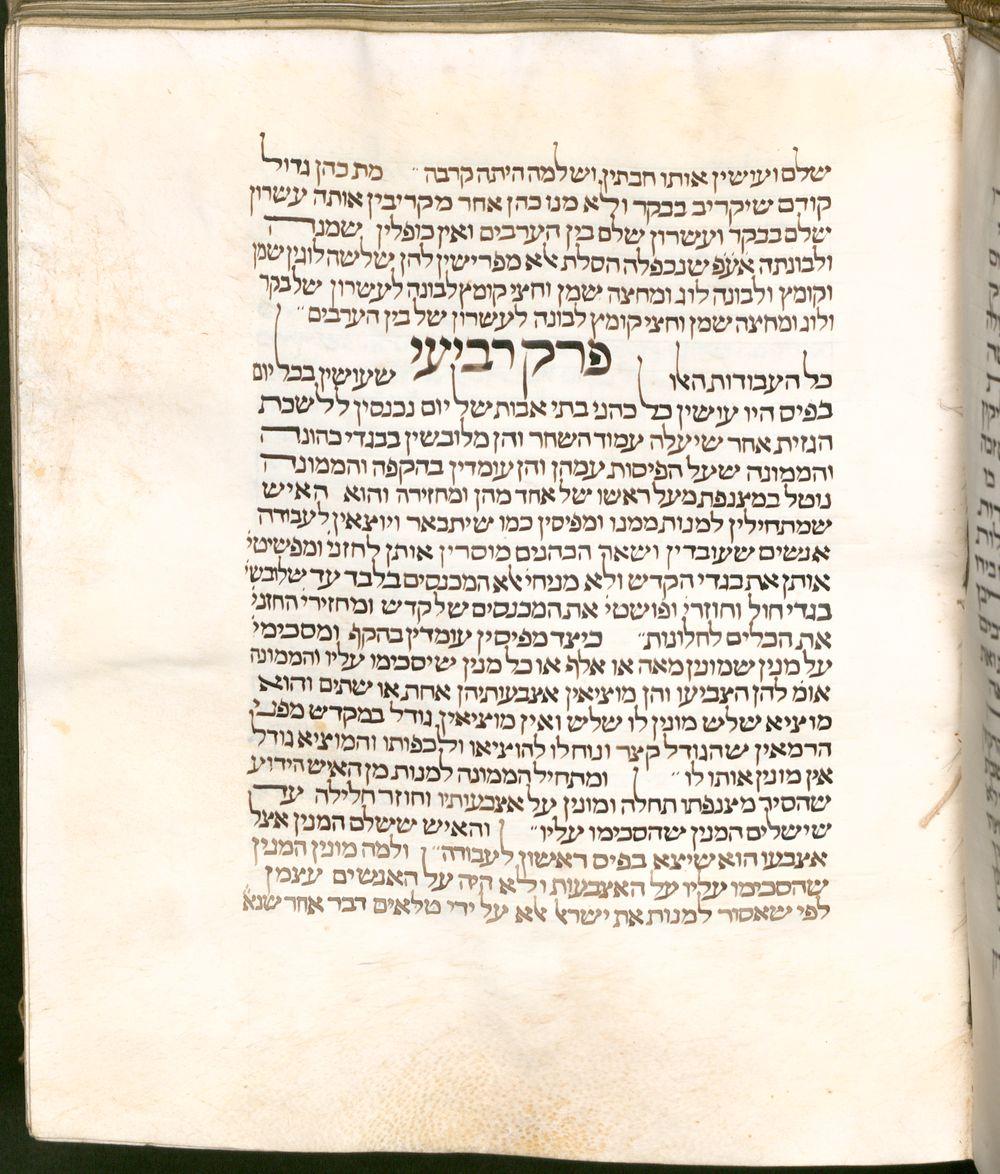 שלם ועושין אותו חבתין ושלמה היתה קרבה״ מת כהן גדול
קודם שיקריב בבקר ולא מנו כהן אחר מקריבין אותה עשרון
שלם בבקר ועשרון שלם בין הערבים ואין כופלין שמנה
ולבונתה אע״פ שנכפלה הסלת אלא מפרישין להן שלשה לוגין שמן
וקומץ ולבונה לוג ומחצה שמן וחצי קומץ לבונה לעשרון שלבקר
ולוג ומחצה שמן וחצי קומץ לבונה לעשרון של בין הערבים״
פרק רביעי
כל העבודות האלו שעושין בכל יום
בפיס היו עושין כל כהני בתי אבות של יום נכנסין ללשכת
הגזית אחר שיעלה עמוד השחר והן מלובשין בבגדי כהונה
והממונה שעל הפיסות עמהן והן עומדין בהקפה והממונה
נוטל במצנפת מעל ראשו של אחד מהן ומחזירה והוא האיש
שמתחילין למנות ממנו ומפיסין כמו שיתבאר ויוצאין לעבודה
אנשים שעובדין ושאר הכהנים מוסרין אותן לחזני׳ ומפשיטי׳
אותן את בגדי הקדש ולא מניחי׳ אלא המכנסים בלבד עד שלובשי׳
בגדי חול וחוזרי׳ ופושטי׳ את המכנסים של קדש ומחזירי׳ החזני׳
את הכלים לחלונות״ כיצד מפיסין עומדין בהקף ומסכימי׳
על מנין שמונין מאה או אלף או כל מנין שיסכימו עליו והממונה
אומ׳ להן הצביעו והן מוציאין אצבעותיהן אחת או שתים והוא
מוציא שלש מונין לו שלש ואין מוציאין גודל במקדש מפני
הרמאין שהגודל קצר ונוחלו להוציאו ולכפותו והמוציא גודל
אין מונין אותו לו״ ומתחיל הממונה למנות מן האיש הידוע
שהסיר מצנפתו תחלה ומונין על אצבעותיו וחוזר חלילה עד
שישלים המנין שהסכימו עליו״ והאיש ששלם המנין אצל
אצבעו הוא שיצא בפיס ראשון לעבודה״ ולמה מונין המנין
שהסכימו עליו על האצבעות ולא היה על האנשים עצמן
לפי שאסור למנות את ישראל אלא על ידי טלאים דבר אחר שנא׳